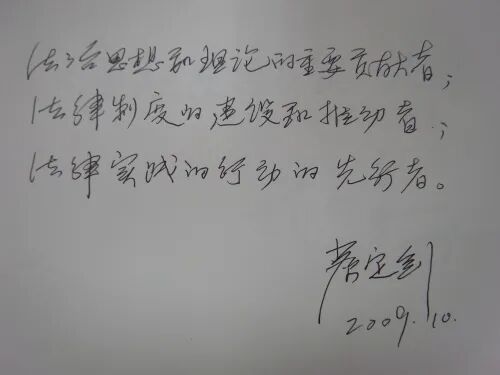 法治思想和理论的重要贡献者；
法律制度的建设和推动者；
法律实践的行动的先行者。
蔡定剑
2009.10.